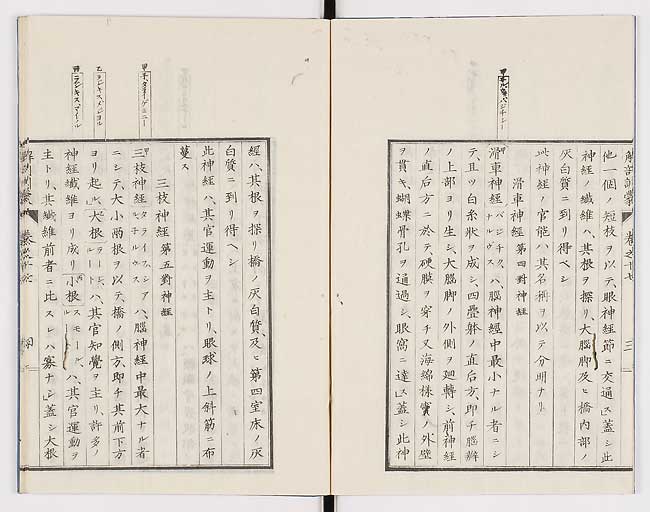 他一個ノ短枝ヲ以テ眼神経節ニ交通」蓋シ此
神経ノ纎維ハ、其根ヲ探リ、大腦脚及ヒ橋内部ノ
灰白質ニ到リ得ベシ
此神経ノ官能ハ其名稱ヲ以テ分明ナリ
滑車神経 第四對神経
滑車神経 ハ腦神経中最小ナル者ニシ
テ、且ツ白糸狀ヲ成シ、四疊躰ノ直后方、即チ腦瓣
ノ上部ヨリ生シ、大腦脚ノ外側ヲ廻轉シ、前神経
ノ直后方ニ於テ硬膜ヲ穿チ又海綿様竇ノ外壁
ヲ貫キ、蝴蝶骨孔ヲ通過シ、眼窩ニ達ス」蓋シ此神
経ハ、其根ヲ探リ橋ノ灰白質、及ヒ第四室床ノ灰
白質ニ到リ得ヘシ
此神経ハ、其官運動ヲ主トリ、眼球ノ上斜筋ニ布
蔓ス
三枝神経 第五對神経
三枝神経 ハ腦神経中最大ナル者
ニシテ、大小兩根ヲ以テ、橋ノ側方、即チ其前下方
ヨリ起ル」大根 ハ、其官知覺ヲ主リ、許多ノ
神経纎維ヨリ成リ」小根 スモール、ルート ハ、其官運動ヲ
主トリ、其纎維前者ニ比スレハ寡ナシ」蓋シ大根